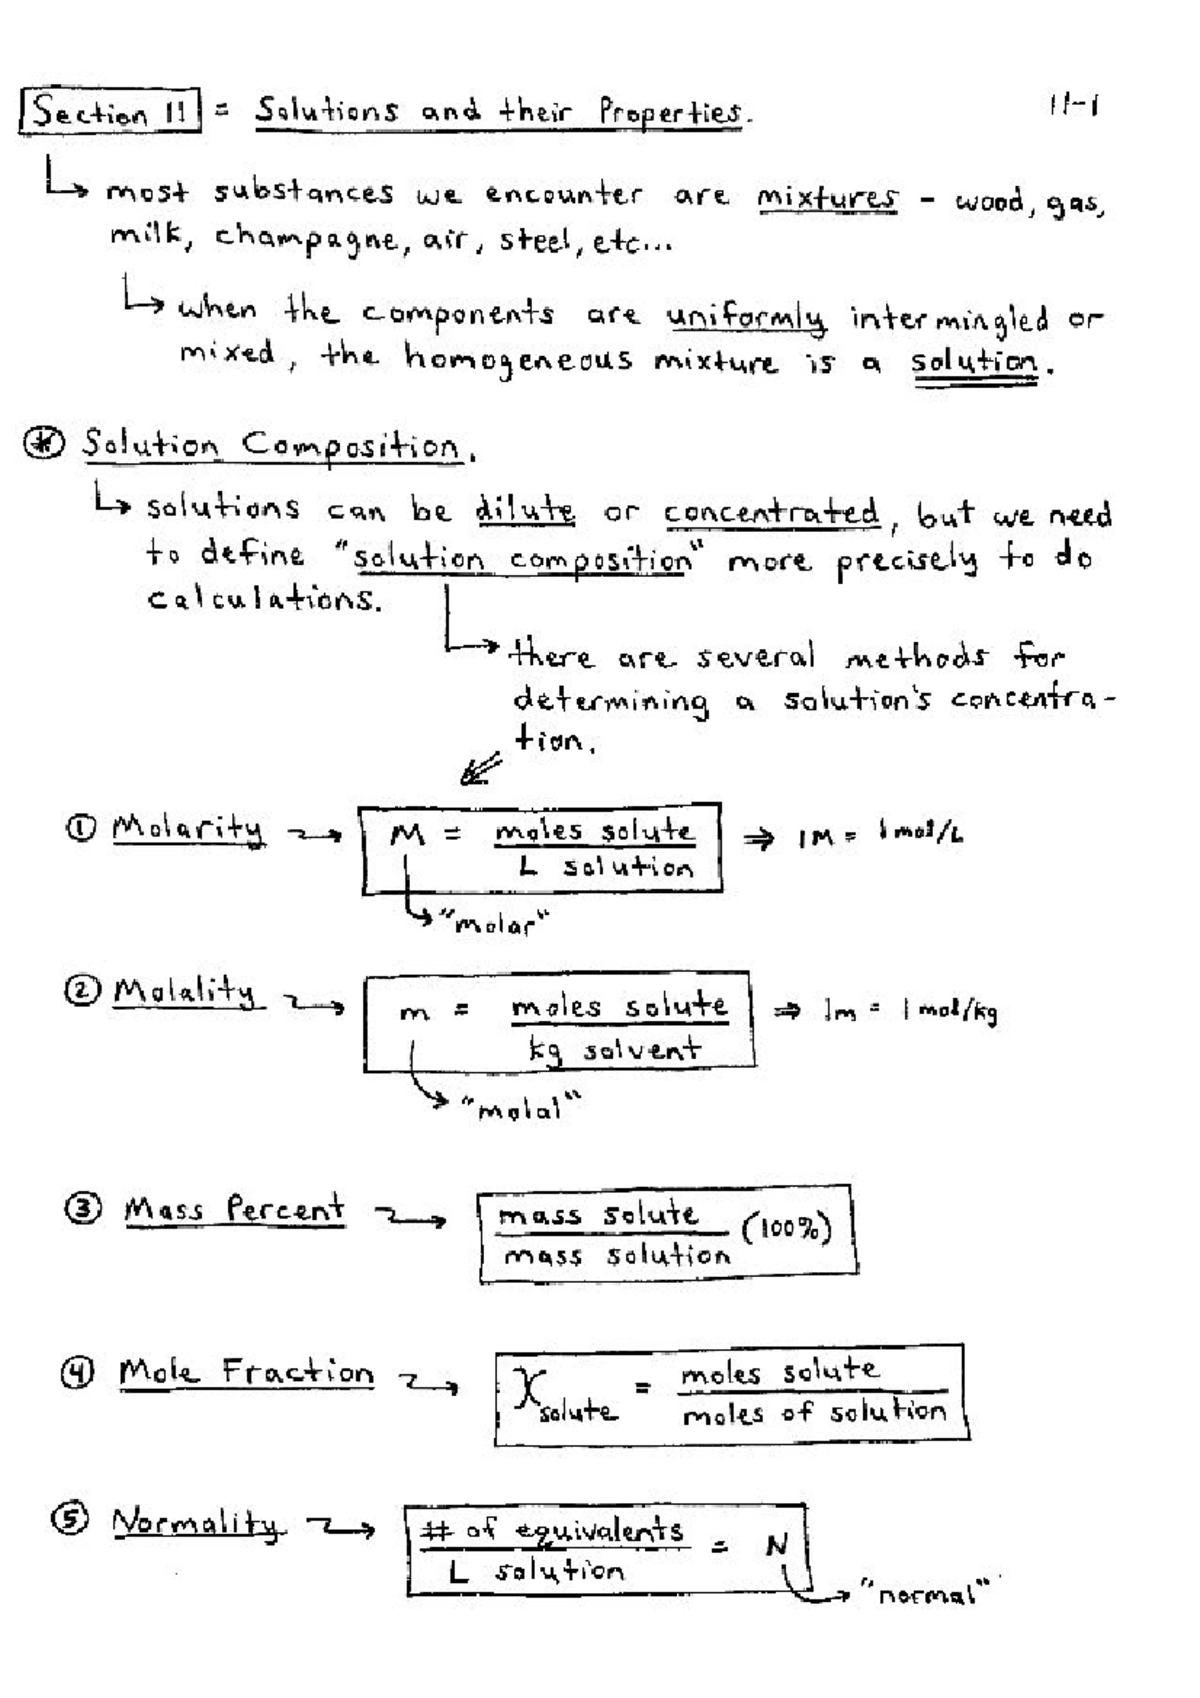 Section 11 = Solutions and their Properties. 11-1
↳ most substances we encounter are mixtures - wood, gas,
milk, champagne, air, steel, etc...
↳ when the components are uniformly intermingled or
mixed, the homogeneous mixture is a solution.
⊛ Solution Composition.
↳ solutions can be dilute or concentrated, but we need
to define "solution composition" more precisely to do
calculations.
↳ there are several methods for
determining a solution's concentra-
tion.
① Molarity → M = moles solute / L solution ⇒ 1M = 1 mol/L
↳ "molar"
② Molality → m = moles solute / kg solvent ⇒ 1m = 1 mol/kg
↳ "molal"
③ Mass Percent → mass solute / mass solution (100%)
④ Mole Fraction → X solute = moles solute / moles of solution
⑤ Normality → # of equivalents / L solution = N
↳ "normal"